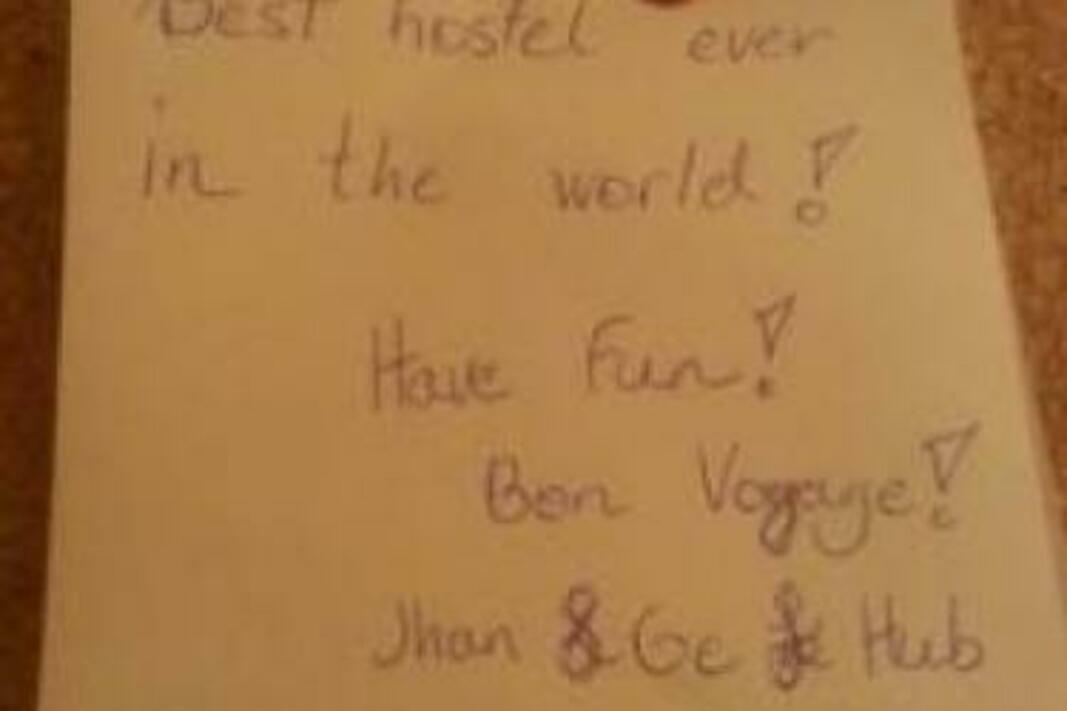 Best hostel ever
in the world!
Have Fun!
Bon Voyage!
Jhan & Ge & Hub